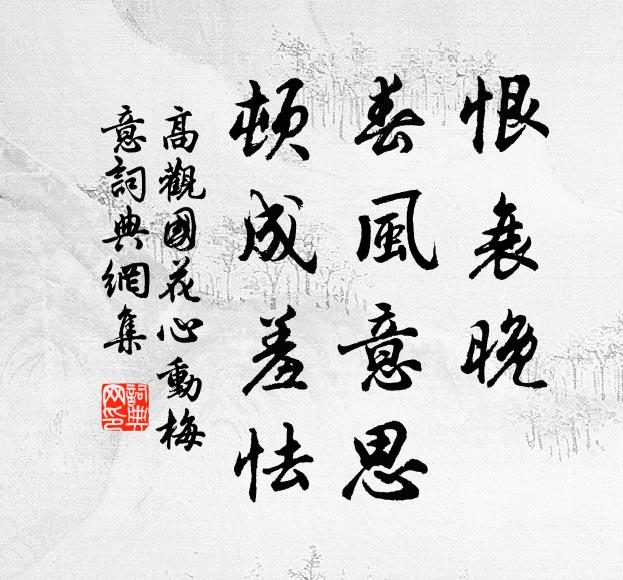 恨衰晚
春風意思
頓成羞怯
高觀國花心動梅
意詞典網集
詞典网印